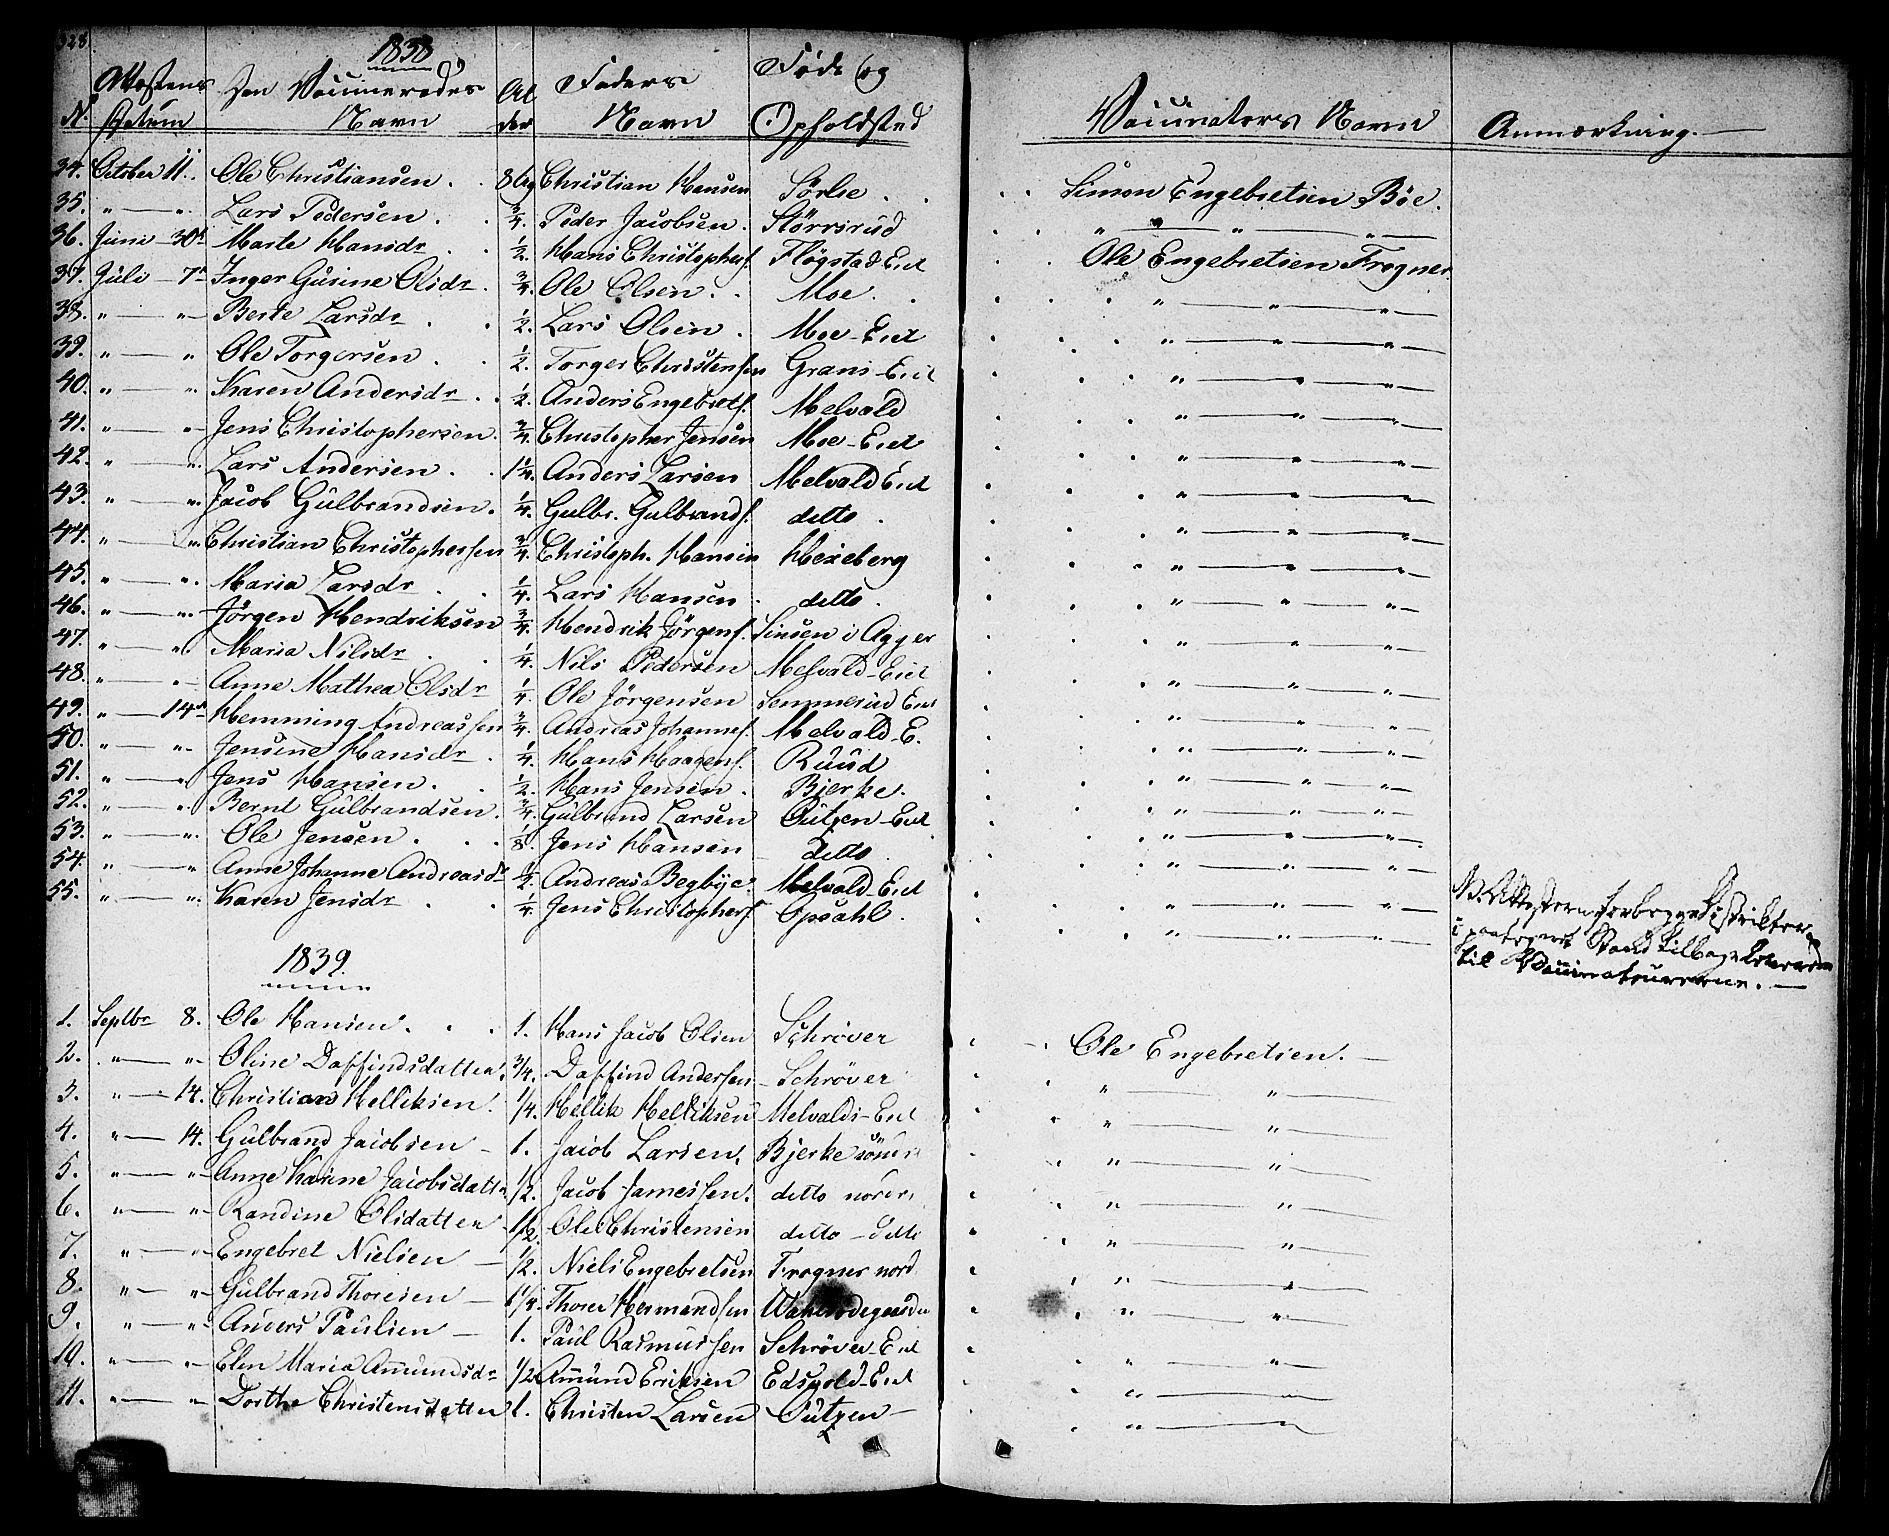 328
1838
N. Attestens Datum Den Vaccineredes Navn Alder Faders Navn Føde og Opholdsted Vaccinateurs Navn Anmærkning.
34. October 11. Ole Christiansen . . 8 Christian Hansen Sörlie . . Simon Engebretsen Böe.
35. " — " Lars Pedersen . . 3/4. Peder Jacobsen . Störrsrud " — " — " —
36. Juni — 30t Marte Hansdr . . 1/2. Hans Christophers. Flögstad Eiet Ole Engebretsen Frogner.
37. Juli — 7d Inger Gusine Olsdr . 3/4. Ole Olsen . . Moe . . " — " — " —
38. " — " Berte Larsdr . . 1/2. Lars Olsen . Moe-Eiet " — " — " —
39. " — " Ole Torgersen . . 1/2. Torger Christensen Grans-Eiet " — " — " —
40. " — " Karen Andersdr . . 1/2. Anders Engebrets. Melvald " — " — " —
41. " — " Jens Christophersen . 3/4. Christopher Jensen Moe-Eiet " — " — " —
42. " — " Lars Andersen . . 1 1/4. Anders Larsen Melvald Eiet " — " — " —
43. " — " Jacob Gulbrandsen . 1/4. Gulbr. Gulbrands. ditto . " — " — " —
44. " — " Christian Christophersen 3/4. Christoph. Hansen Hexeberg " — " — " —
45. " — " Maria Larsdr . . 1/4. Lars Hansen . ditto . " — " — " —
46. " — " Jörgen Hendriksen 3/4. Hendrik Jörgens. Sinsen i Agger " — " — " —
47. " — " Maria Nilsdr . . 1/4. Nils Pedersen Melvald-Eiet " — " — " —
48. " — " Anne Mathea Olsdr 1/4. Ole Jörgensen Semmerud Eiet " — " — " —
49. " — 14d Hemming Andreassen 3/4. Andreas Johannes. Melvald-E. " — " — " —
50. " — " Jensine Hansdr . 1/4. Hans Haagens. Ruud " — " — " —
51. " — " Jens Hansen . . 1/2. Hans Jensen . Bjerke. " — " — " —
52. " — " Bernt Gulbrandsen . 3/4. Gulbrand Larsen Outzen-Eiet " — " — " —
53. " — " Ole Jensen . . . 1/8. Jens Hansen — ditto . " — " — " —
54. " — " Anne Johanne Andreasdr 1/2. Andreas Begbye. Melvald-Eiet " — " — " —
55. " — " Karen Jensdr . . 1/4. Jens Christophers. Opsahl . " — " — " —
NB. Attesterne for begge Districter
i Stand tilbage
til Vaccinateurerne. —
1839.
1. Septbr 8. Ole Hansen . . . 1. Hans Jacob Olsen Schröver Ole Engebretsen. —
2. " — " Oline Daffindsdatter. 3/4. Daffind Andersen — Schröver " — " —
3. " — 14. Christian Helliksen. 1/4. Hellik Helliksen Melvalds-Eiet " — " —
4. " — 14. Gulbrand Jacobsen — 1. Jacob Larsen. Bjerke sönd " — " —
5. " — " Anne Karine Jacobsdatter 1/2. Jacob Jamessen. ditto nordr " — " —
6. " — " Randine Olsdatter 1/2. Ole Christensen ditto — ditto " — " —
7. " — " Engebret Nielsen — 1/2. Niels Engebretsen Frogner nord " — " —
8. " — " Gulbrand Thoresen — 1 1/4. Thorer Hermandsen " — " —
9. " — " Anders Paulsen — 1. Paul Rasmussen Schröver-Eiet " — " —
10. " — " Elen Maria Amundsdr 1/2. Amund Eriksen Edsvold-Eiet " — " —
11. " — " Dorthe Christensdatter 1. Christen Larsen Outzen — " — " —